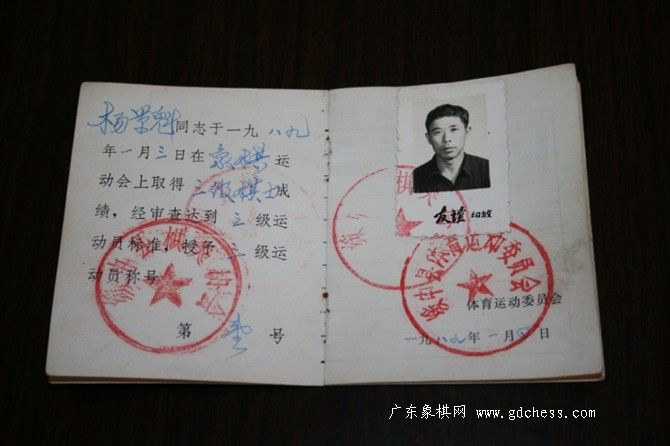 杨学魁同志于一九八九
年一月三日在象棋运
动会上取得三级棋士成
绩，经审查达到三级运
动员标准，授予三级运
动员称号
第 号
友谊
县体育运动委员会
体育运动委员会
一九八九年一月四日
广东象棋网 www.gdchess.com